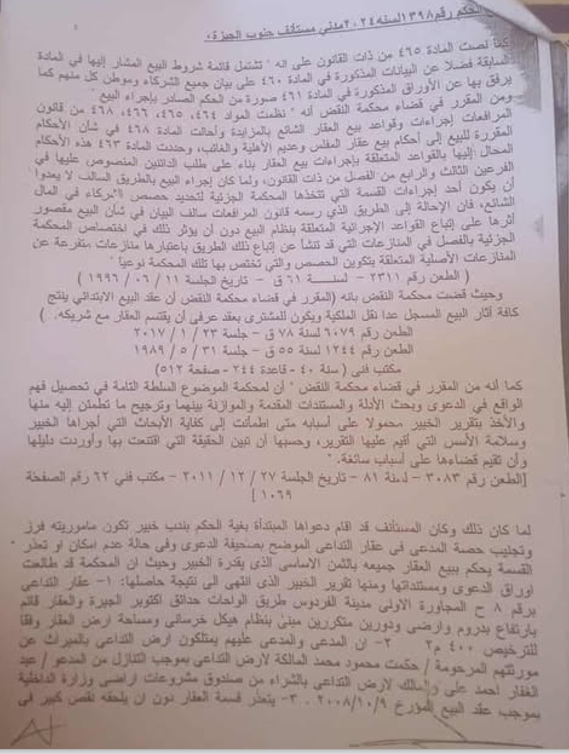 الحكم رقم ١٣٩٨ لسنه ٢٠٢٤ مدني مستأنف جنوب الجيزة .
كما نصت المادة ٤٦٥ من ذات القانون على انه " تشتمل قائمة شروط البيع المشار إليها في المادة
السابقة فضلا عن البيانات المذكورة في المادة ٤٦٠ على بيان جميع الشركاء وموطن كل منهم كما
يرفق بها عن الأوراق المذكورة في المادة ٤٦١ صورة من الحكم الصادر بإجراء البيع "
ومن المقرر في قضاء محكمة النقض أنه " نظمت المواد ٤٦٤، ٤٦٥، ٤٦٦، ٤٦٨ من قانون
المرافعات إجراءات وقواعد بيع العقار الشائع بالمزايدة وأحالت المادة ٤٦٨ في شأن الأحكام
المقررة للبيع إلى أحكام بيع عقار المفلس وعديم الأهلية والغائب، وحددت المادة ٤٦٣ هذه الأحكام
المحال إليها بالقواعد المتعلقة بإجراءات بيع العقار بناء على طلب الدائنين المنصوص عليها في
الفرعين الثالث والرابع من الفصل من ذات القانون، ولما كان إجراء البيع بالطريق السالف لا يعدوا
أن يكون أحد إجراءات القسمة التي تتخذها المحكمة الجزئية لتحديد حصص الشركاء في المال
الشائع، فان الإحالة إلى الطريق الذي رسمه قانون المرافعات سالف البيان في شأن البيع مقصور
أثرها على إتباع القواعد الإجرائية المتعلقة بنظام البيع دون أن يؤثر ذلك في اختصاص المحكمة
الجزئية بالفصل في المنازعات التي قد تنشأ عن إتباع ذلك الطريق باعتبارها منازعات متفرعة عن
المنازعات الأصلية المتعلقة بتكوين الحصص والتي تختص بها تلك المحكمة نوعيا "
( الطعن رقم ٢٣١١ - لسنــة ٦١ ق - تاريخ الجلسة ١١ / ٠٦ / ١٩٩٦ )
وحيث قضت محكمة النقض بانه (المقرر في قضاء محكمة النقض أن عقد البيع الابتدائي ينتج
كافة أثار البيع المسجل عدا نقل الملكية ويكون للمشترى بعقد عرفى أن يقتسم العقار مع شريكه. )
الطعن رقم ٦٠٧٩ لسنة ٧٨ ق - جلسة ٢٣ / ١ / ٢٠١٧
الطعن رقم ١٢٤٤ لسنة ٥٥ ق - جلسة ٣١ / ٥ / ١٩٨٩
مكتب فنى ( سنة ٤٠ - قاعدة ٢٤٤ - صفحة ٥١٢)
كما أنه من المقرر في قضاء محكمة النقض " أن لمحكمة الموضوع السلطة التامة في تحصيل فهم
الواقع في الدعوى وبحث الأدلة والمستندات المقدمة والموازنة بينهما وترجيح ما تطمئن إليه منها
والأخذ بتقرير الخبير محمولا على أسبابه متى اطمأنت إلى كفاية الأبحاث التي أجراها الخبير
وسلامة الأسس التي أقيم عليها التقرير، وحسبها أن تبين الحقيقة التي اقتنعت بها وأوردت دليلها
وأن تقيم قضاءها على أسباب سائغة. "
[الطعن رقم ٣٠٨٣ - لسنة ٨١ - تاريخ الجلسة ٢٧ / ١٢ / ٢٠١١ - مكتب فني ٦٢ رقم الصفحة
١٠٦٩ ]
لما كان ذلك وكان المستأنف قد اقام دعواها المبتدأة بغية الحكم بندب خبير تكون ماموريته فرز
وتجنيب حصة المدعى في عقار التداعى الموضح بصحيفة الدعوى وفى حالة عدم امكان او تعذر
القسمة يحكم ببيع العقار جميعه بالثمن الأساسى الذى يقدرة الخبير وحيث ان المحكمة قد طالعت
اوراق الدعوى ومستنداتها ومنها تقرير الخبير الذى انتهى الى نتيجة حاصلها: ١- عقار التداعى
برقم ٨ ح المجاورة الاولى مدينة الفردوس طريق الواحات حدائق اكتوبر الجيزة والعقار قائم
بارتفاع بدروم وارضى ودورين متكررين مبنى بنظام هيكل خرسانى ومساحة ارض العقار وفقا
للترخيص ٤٠٠ م٢ ٢- ان المدعى والمدعى عليهم يمتلكون ارض التداعى بالميراث عن
مورثتهم المرحومة / حكمت محمود محمد المالكة لارض التداعى بموجب التنازل من المدعو / عبد
الغفار احمد على والمالك لارض التداعى بالشراء من صندوق مشروعات اراضى وزارة الداخلية
بموجب عقد البيع المؤرخ ٢٠٠٨/١٠/٩ . ٣- يتعذر قسمة العقار دون ان يلحقه نقص كبير في